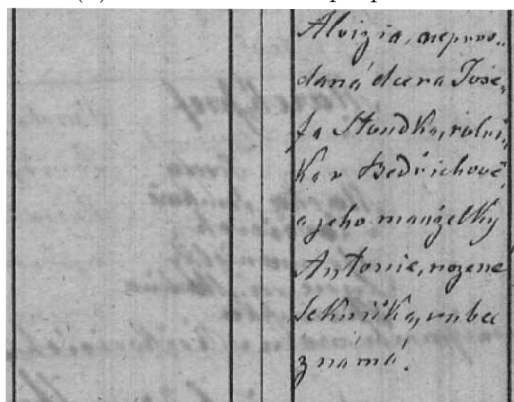 Aloizia, neprov-
daná dcera Jose-
fa Stoudka, rolní-
ka v Bedřichově
a jeho manželky
Antonie, rozené
vůbec
známá.